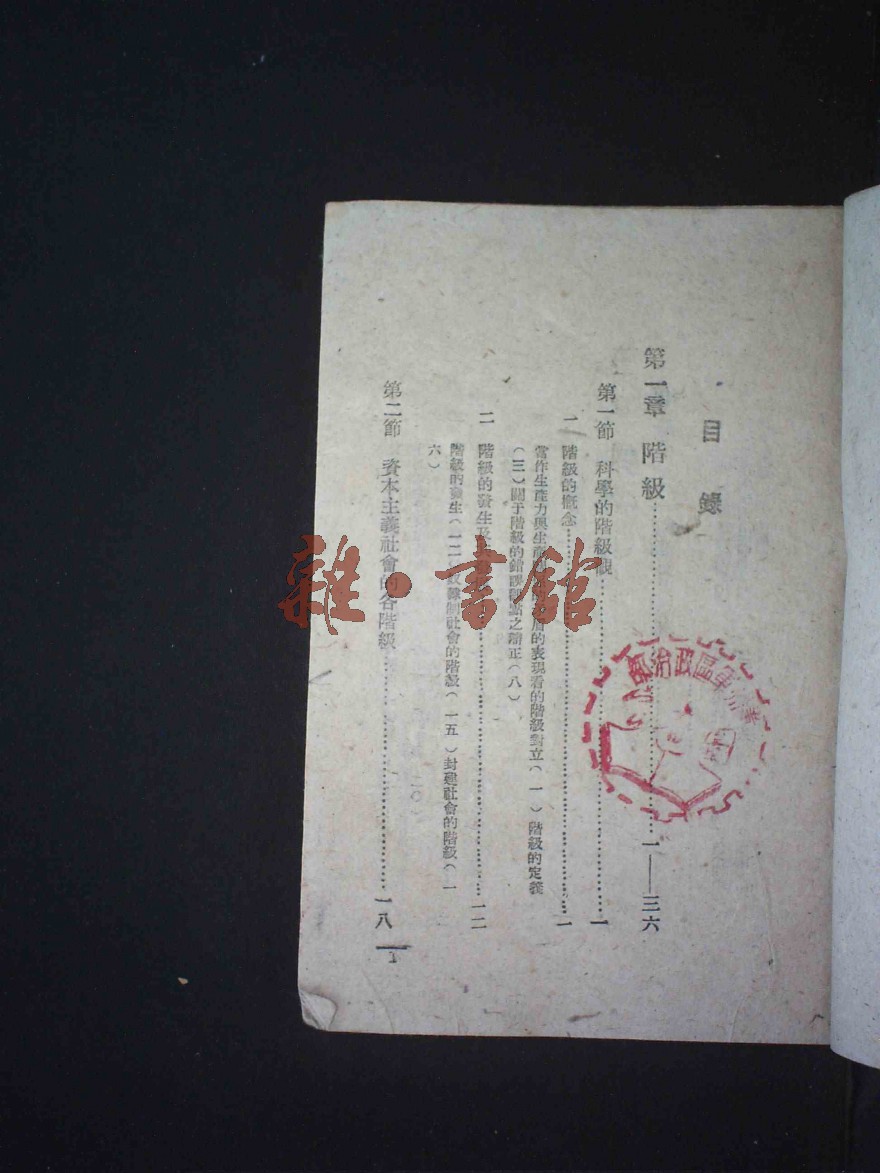 目錄
第一章 階級……一——三六
第一節 科學的階級觀……一
一 階級的概念……一
當作生產力與生產 的表現看的階級對立(一)階級的定義
(三)關于階級的錯誤 點之糾正(八)
二 階級的發生及……一二
階級的發生(一二)奴隸制社會的階級(一五)封建社會的階級(一
六)
第二節 資本主義社會的各階級……一八
1
雜·書館
軍區政治部